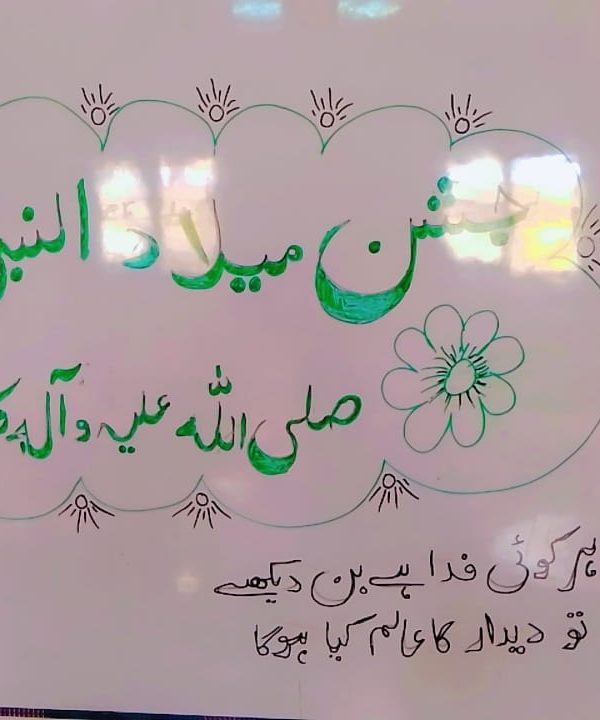 جشن میلاد النبی
صلی اللہ علیہ وآلہ
ہر کوئی فدا ہے بن دیکھے
تو دیدار کا عالم کیا ہوگا